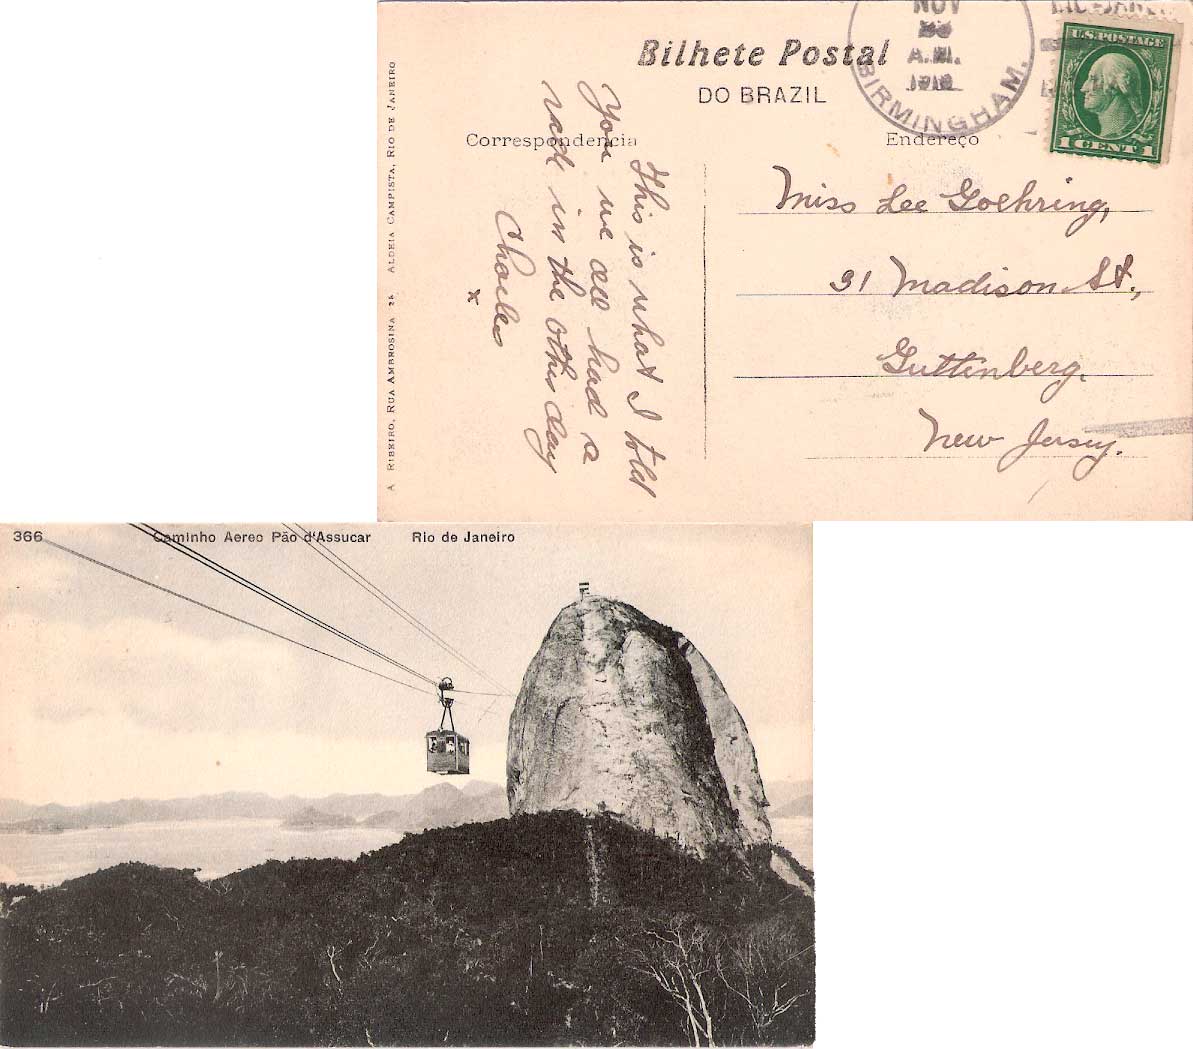 Bilhete Postal
DO BRAZIL
Correspondencia
Endereço
NOV
A.M.
BIRMINGHAM.
RIO-JANEIRO
U.S. POSTAGE
1 CENT 1
A RIBEIRO, RUA AMBROSINA 25 ALDEIA CAMPISTA, RIO DE JANEIRO
This is what I told
you we all had a
ride in the other day
Charles
x
Miss Lee Goehring,
31 Madison St.,
Guttenberg.
New Jersey.
366 Caminho Aereo Pão d'Assucar Rio de Janeiro